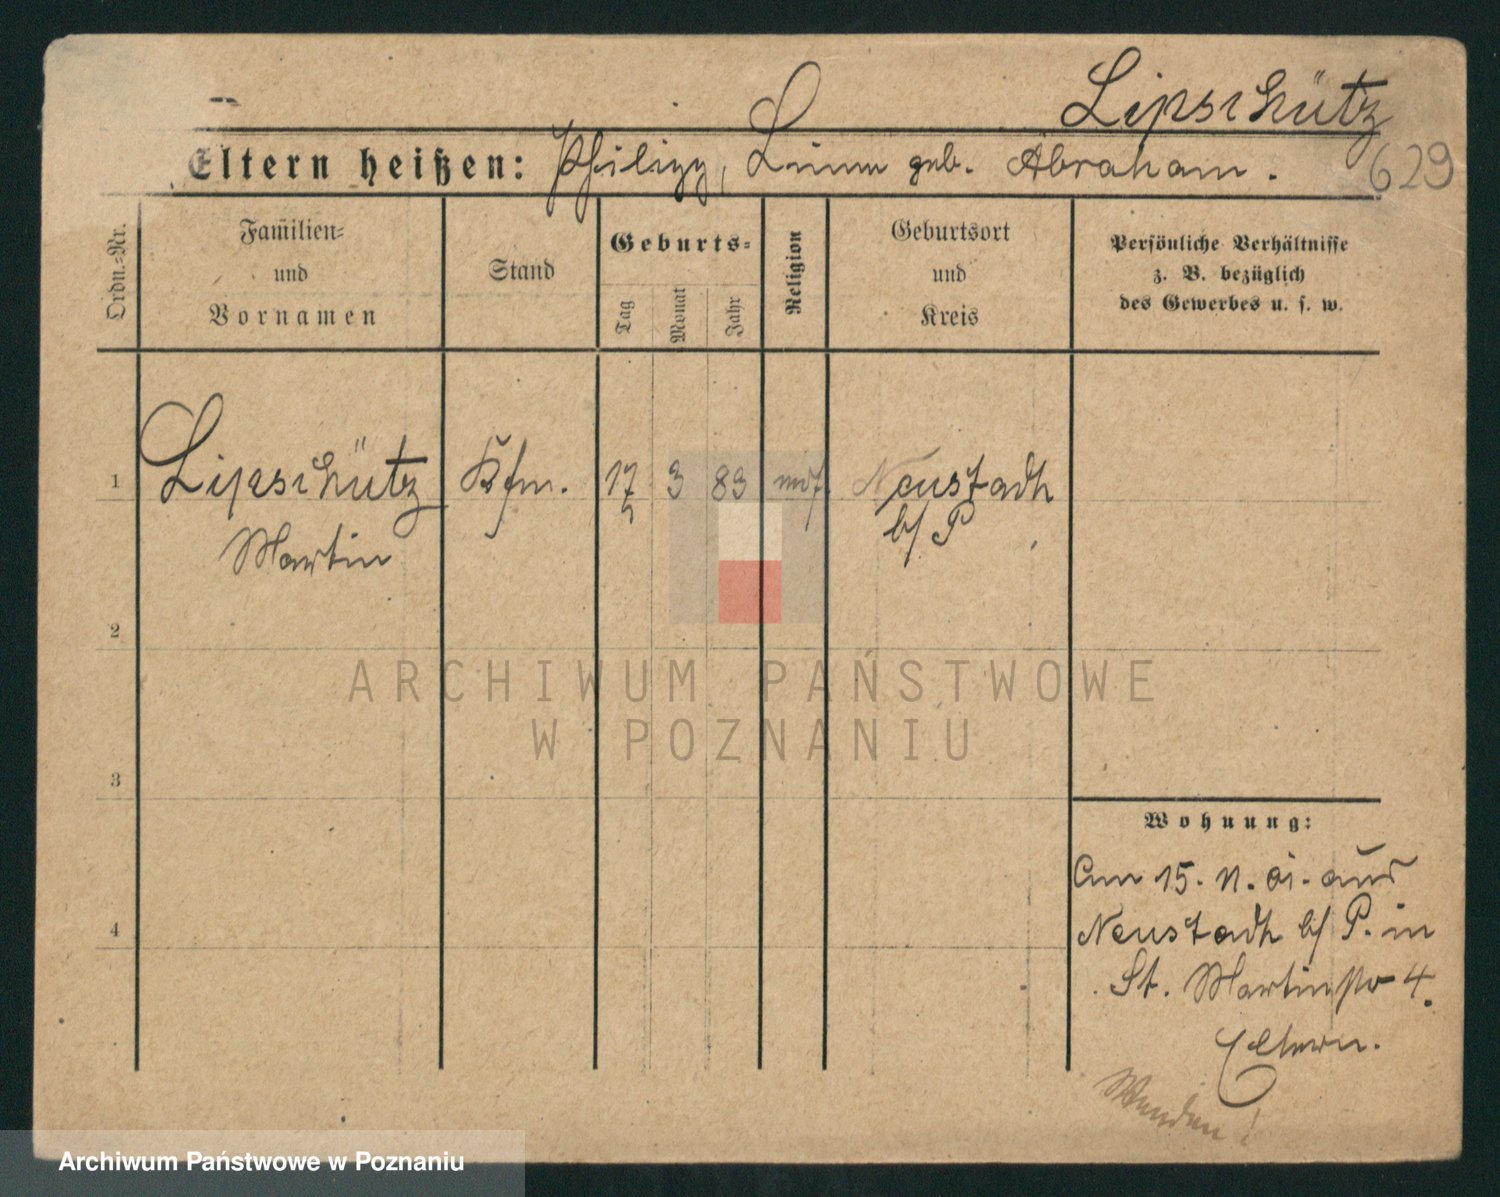 Lipschütz
Eltern heißen: Philipp, geb. Abraham.
629
Ordn.-Nr.
Familien-
und
Vornamen
Stand
Geburts-
Tag
Monat
Jahr
Religion
Geburtsort
und
Kreis
Persönliche Verhältnisse
z. B. bezüglich
des Gewerbes u. s. w.
1
Lipschütz
Martin
Kfm.
17
3
83
Neustadt
b/P
2
3
4
Wohnung:
Am 15. 11. 01. aus
Neustadt b/P. in
St. Martinstr 4.
Eltern.
Wenden!
ARCHIWUM PAŃSTWOWE
W POZNANIU
Archiwum Państwowe w Poznaniu